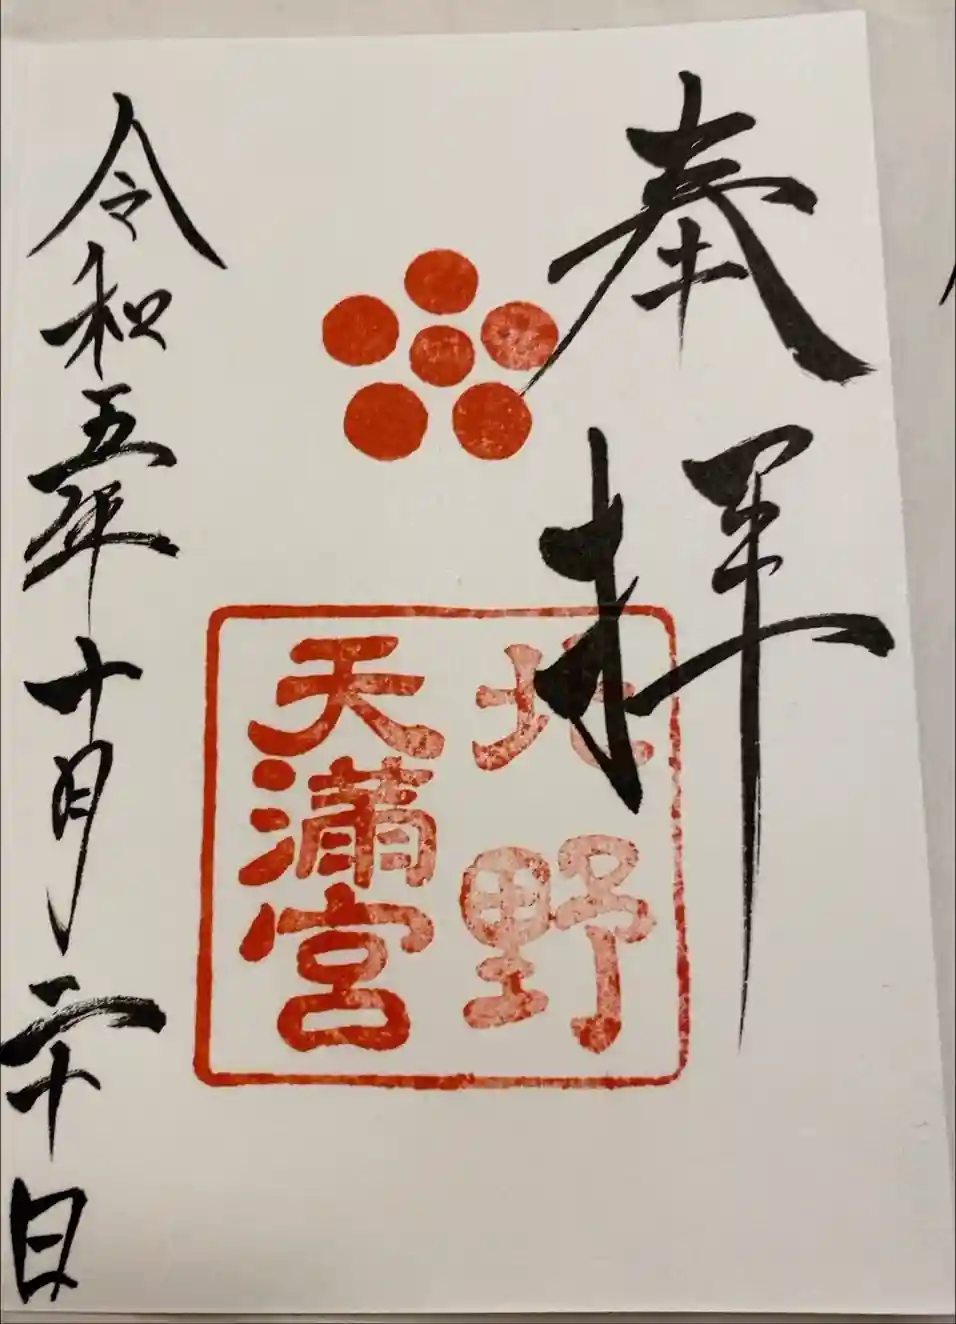 奉拝
北野
天満宮
令和五年十月二十日